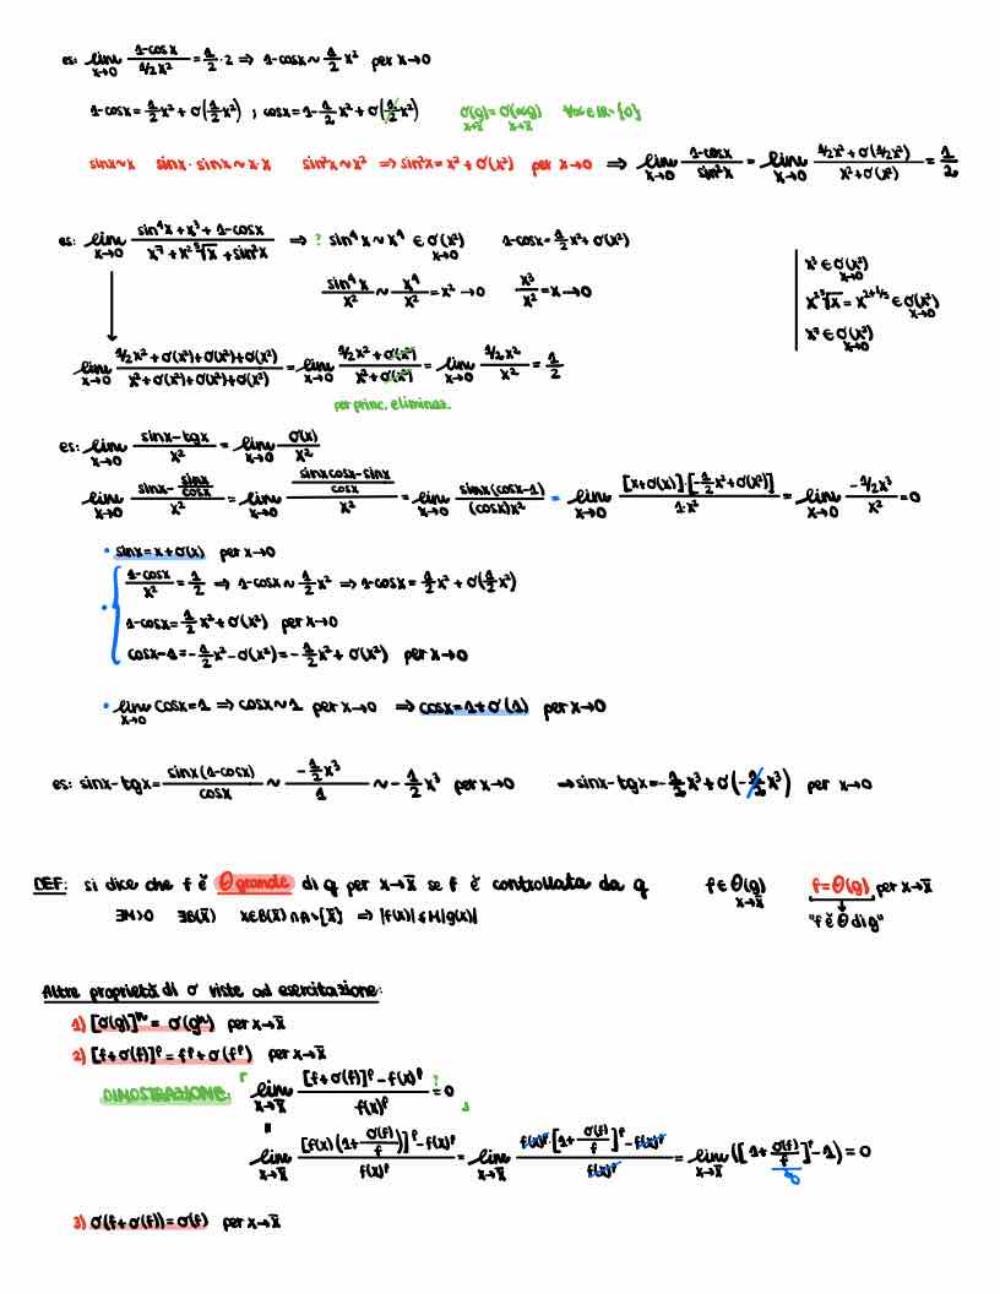 es: lim x→0 (1-cosx)/(1/2x²) = 1/2·2 ⇒ 1-cosx ~ 1/2 x² per x→0
1-cosx = 1/2x² + o(1/2x²) ; cosx = 1-1/2x² + o(1/2x²) o(g) x→x̄ = o(αg) x→x̄ ∀α∈ℝ∖{0}
sinx~x sinx·sinx~x·x sin²x~x² ⇒ sin²x = x² + o(x²) per x→0 ⇒ lim x→0 (1-cosx)/(sin²x) = lim x→0 (1/2x² + o(1/2x²))/(x² + o(x²)) = 1/2
es: lim x→0 (sin⁴x + x³ + 1-cosx)/(x⁷ + x² ⁵√x + sin²x) ⇒ ? sin⁴x ~ x⁴ ∈ o(x²) x→0 1-cosx = 1/2x² + o(x²)
x³ ∈ o(x²) x→0
(sin⁴x)/x² ~ x⁴/x² = x² → 0 x³/x² = x → 0
x² ⁵√x = x^(2+1/5) ∈ o(x²) x→0
x⁷ ∈ o(x²) x→0
lim x→0 (1/2x² + o(x²) + o(x²) + o(x²))/(x² + o(x²) + o(x²) + o(x²)) = lim x→0 (1/2x² + o(x²))/(x² + o(x²)) = lim x→0 (1/2x²)/x² = 1/2
per princ. eliminaz.
es: lim x→0 (sinx-tgx)/x² = lim x→0 o(x)/x²
lim x→0 (sinx - sinx/cosx)/x² = lim x→0 ((sinxcosx-sinx)/cosx)/x² = lim x→0 (sinx(cosx-1))/((cosx)x²) = lim x→0 ([x+o(x)]·[-1/2x²+o(x²)])/(1·x²) = lim x→0 (-1/2x³)/x² = 0
• sinx = x + o(x) per x→0
• { (1-cosx)/x² = 1/2 ⇒ 1-cosx ~ 1/2x² ⇒ 1-cosx = 1/2x² + o(1/2x²)
1-cosx = 1/2x² + o(x²) per x→0
cosx-1 = -1/2x² - o(x²) = -1/2x² + o(x²) per x→0
• lim x→0 cosx = 1 ⇒ cosx ~ 1 per x→0 ⇒ cosx = 1 + o(1) per x→0
es: sinx-tgx = (sinx(1-cosx))/cosx ~ (-1/2x³)/1 ~ -1/2x³ per x→0 → sinx-tgx = -1/2x³ + o(-1/2x³) per x→0
DEF: si dice che f è O grande di g per x→x̄ se f è controllata da g f∈O(g) x→x̄ f=O(g) per x→x̄
∃M>0 ∃B(x̄) x∈B(x̄)∩A∖{x̄} ⇒ |f(x)|≤M|g(x)| "f è O di g"
Altre proprietà di o viste ad esercitazione:
1) [o(g)]ⁿ = o(gⁿ) per x→x̄
2) [f+o(f)]ᵖ = fᵖ + o(fᵖ) per x→x̄
DIMOSTRAZIONE: lim x→x̄ ([f+o(f)]ᵖ - f(x)ᵖ)/f(x)ᵖ =? 0
= lim x→x̄ ([f(x)(1+o(f)/f)]ᵖ - f(x)ᵖ)/f(x)ᵖ = lim x→x̄ (f(x)ᵖ·[1+o(f)/f]ᵖ - f(x)ᵖ)/f(x)ᵖ = lim x→x̄ ([1+o(f)/f]ᵖ - 1) = 0
3) o(f+o(f)) = o(f) per x→x̄